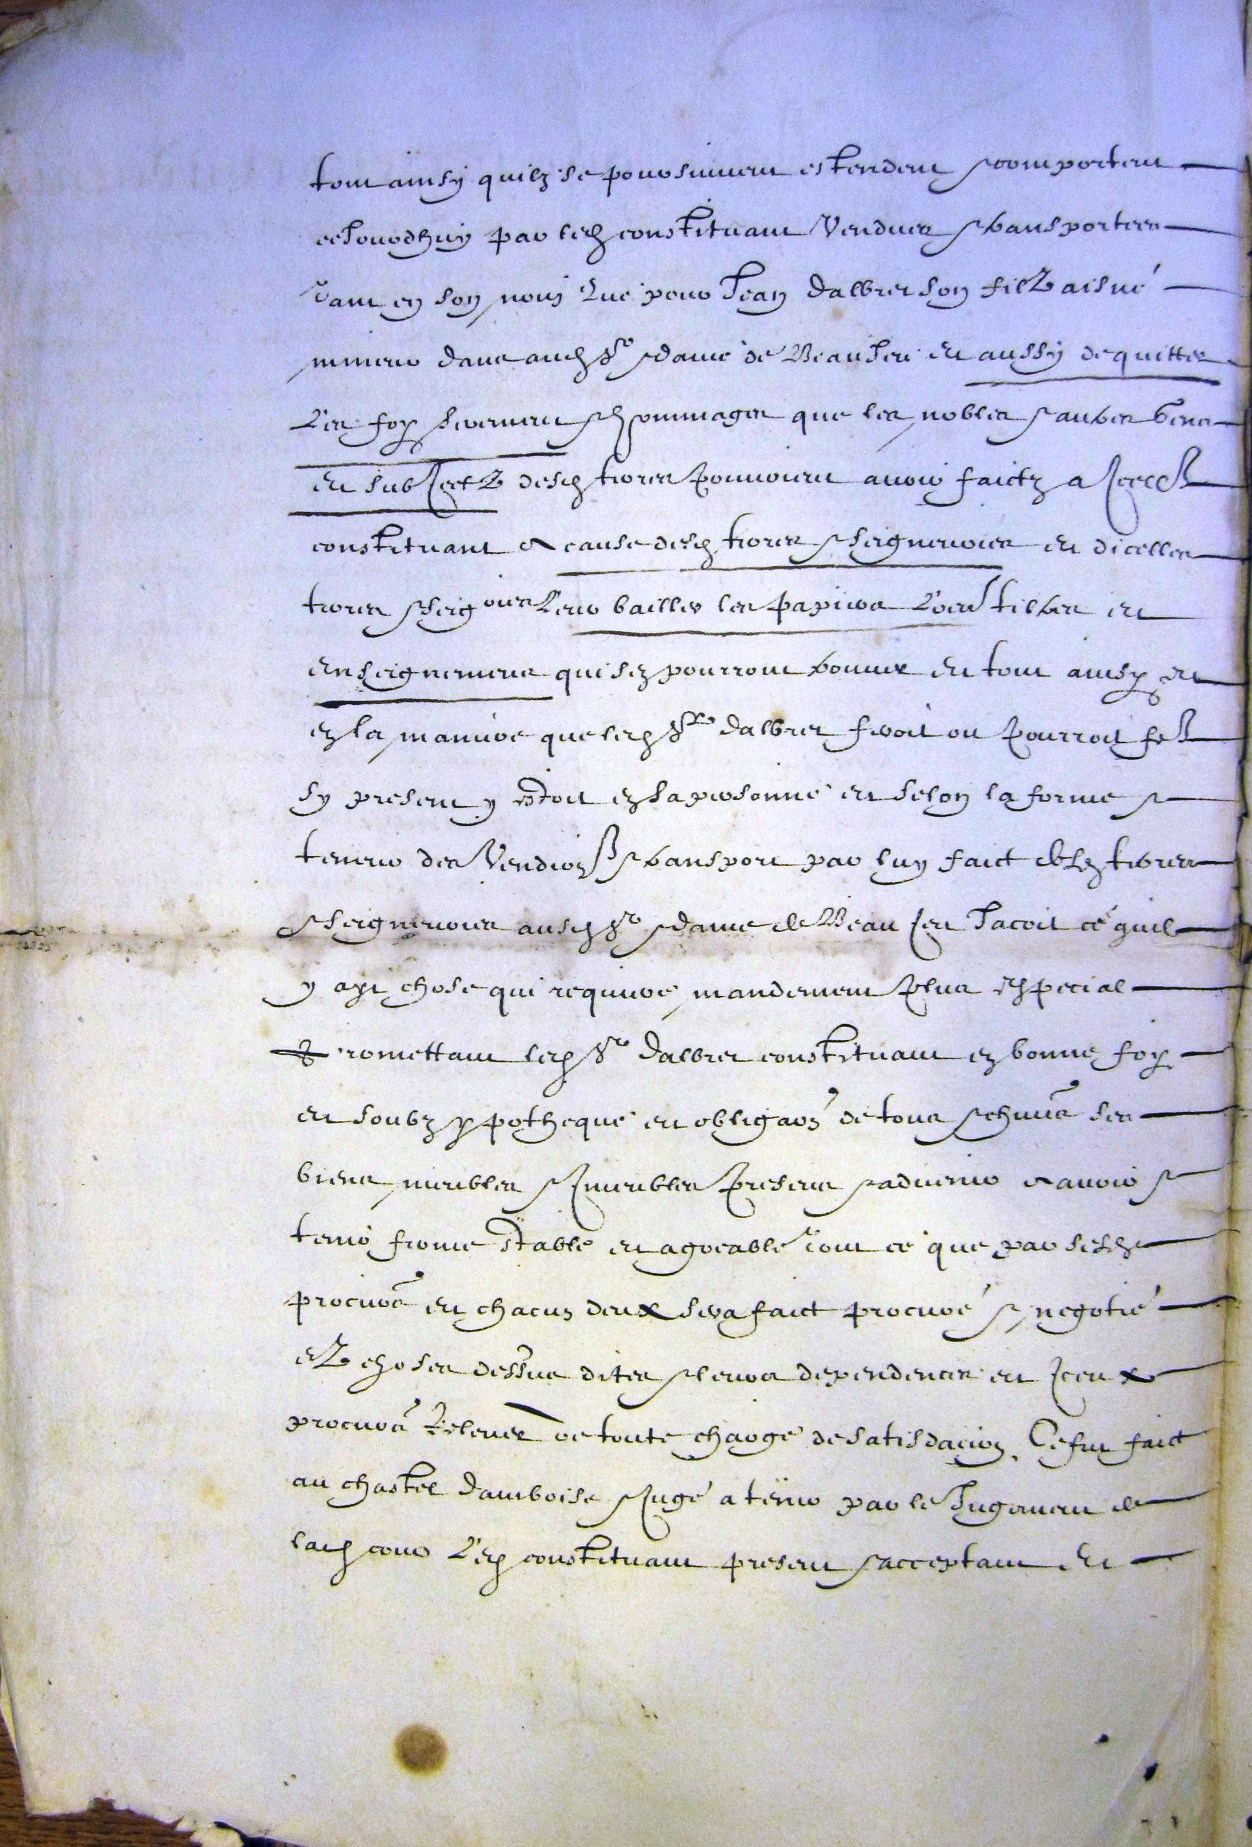 tout ainsy quilz se poursuivent estendent & comportent
ce Jourdhuy par led constituant Vendues & transportees
tant en son nom que pour Jean dalbret son filz aisné
mineur dans aud Sr & dame de Beaujeu et aussy de quitter
les foy serment & hommages que les nobles & autres gens
et subjectz desd terres pouvoient avoir faictz a Icell
constituant a cause desd terres & seigneuries et dicelles
terres & seigries leur bailler les papiers lres tiltres et
enseignemens quisez pourront trouver et tout ainsy et
en la maniere que led Sr dalbret feroit ou pourroit fe
sy present y estoit en sa personne et selon la forme &
teneur des Vendion & transport par luy faict desd terres
& seigneuries ausd Sr & dame de Beaujeu Jacoit ce quil
y ayt chose qui requiere mandement plus especial
Promettant led Sr dalbret constituant en bonne foy
et soubz ypotheque et obligaon de tous & chuns ses
biens meubles & Immeubles presens & advenir a avoir &
tenir ferme stable et agreable tout ce que par sesd
procurs et chacun deux sera faict procuré & negotié
ez choses dessus dites & leurs dependences et Iceux
procurs Relever de toute charge de satisdacion. Ce fut faict
au chastel damboise & Jugé a tenir par le Jugement de
lad cour led constituant present & acceptant Et